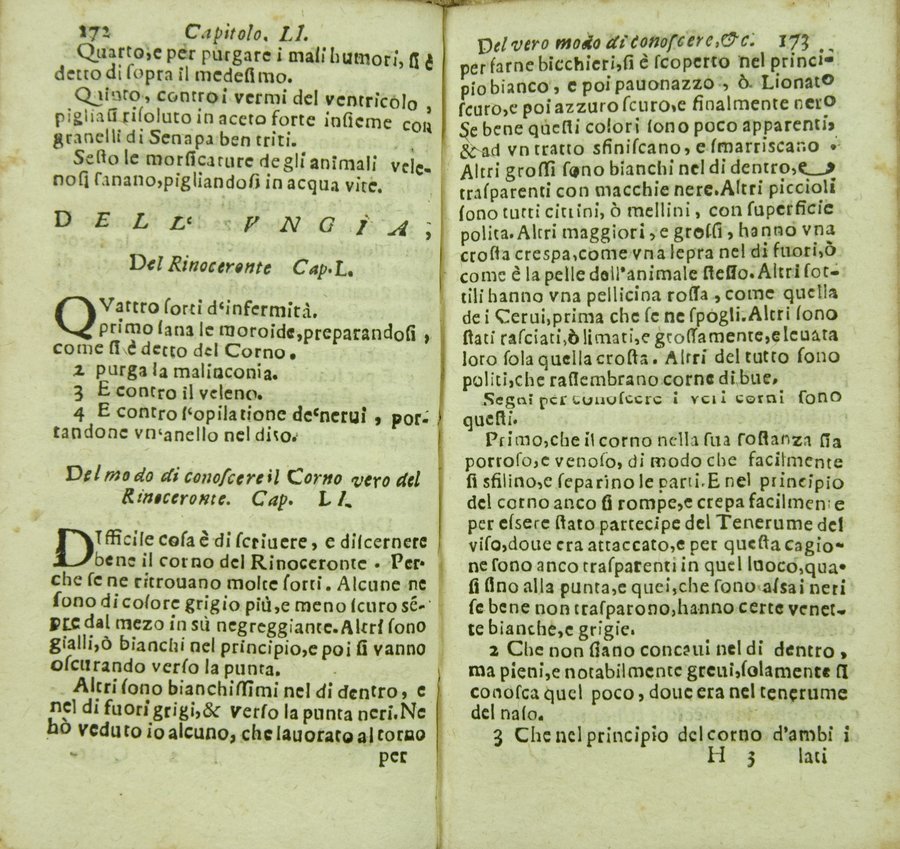 172 Capitolo. LI.
Quarto,e per purgare i mali humori, ſi è
detto di ſopra il medeſimo.
Quinto, contro i vermi del ventricolo,
pigliaſi riſoluto in aceto forte inſieme con
granelli di Senapa ben triti.
Seſto le morſicature degli animali vele-
noſi ſanano,pigliandoſi in acqua vite.
DELL' VNGIA,
Del Rinoceronte Cap.L.
QVattro ſorti d'infermità.
primo ſana le moroide,preparandoſi,
come ſi è detto del Corno.
2 purga la malinconia.
3 E contro il veleno.
4 E contro l'opilatione de'nerui, por-
tandone vn'anello nel dito.
Del modo di conoſcere il Corno vero del
Rinoceronte. Cap. LI.
DIfficile coſa è di ſcriuere, e diſcernere
bene il corno del Rinoceronte. Per-
che ſe ne ritrouano molte ſorti. Alcune ne
ſono di colore grigio più,e meno ſcuro sé-
pre dal mezo in sù negreggiante. Altri ſono
gialli,ò bianchi nel principio,e poi ſi vanno
oſcurando verſo la punta.
Altri ſono bianchiſſimi nel di dentro, e
nel di fuori grigi,& verſo la punta neri.Ne
hò veduto io alcuno, che lauorato al torno
per
Del vero modo di conoſcere,&c. 173
per farne bicchieri,ſi è ſcoperto nel princi-
pio bianco, e poi pauonazzo, ò Lionato
ſcuro,e poi azzuro ſcuro,e finalmente nero
Se bene queſti colori ſono poco apparenti,
& ad vn tratto sfiniſcano, e ſmarriscano.
Altri groſſi ſono bianchi nel di dentro,e
traſparenti con macchie nere.Altri piccioli
ſono tutti cittini, ò mellini, con ſuperficie
polita. Altri maggiori, e groſſi, hanno vna
croſta creſpa,come vna lepra nel di fuori,ò
come è la pelle dell'animale ſteſſo. Altri ſot-
tili hanno vna pellicina roſſa, come quella
de i Cerui,prima che ſe ne ſpogli.Altri ſono
ſtati raſciati,ò limati,e groſſamente,eleuata
loro ſola quella croſta. Altri del tutto ſono
politi,che raſſembrano corne di bue.
Segni per conoſcere i veri corni ſono
queſti.
Primo,che il corno nella ſua ſoſtanza ſia
porroſo,e venoſo, di modo che facilmente
ſi sfilino,e ſeparino le parti.E nel principio
del corno anco ſi rompe,e crepa facilmente
per eſſere ſtato partecipe del Tenerume del
viſo,doue era attaccato,e per queſta cagio-
ne ſono anco traſparenti in quel luoco,qua-
ſi ſino alla punta,e quei,che ſono aſſai neri
ſe bene non traſparono,hanno certe venet-
te bianche,e grigie.
2 Che non ſiano concaui nel di dentro,
ma pieni,e notabilmente greui,ſolamente ſi
conoſca quel poco, doue era nel tenerume
del naſo.
3 Che nel principio del corno d'ambi i
H 3 lati